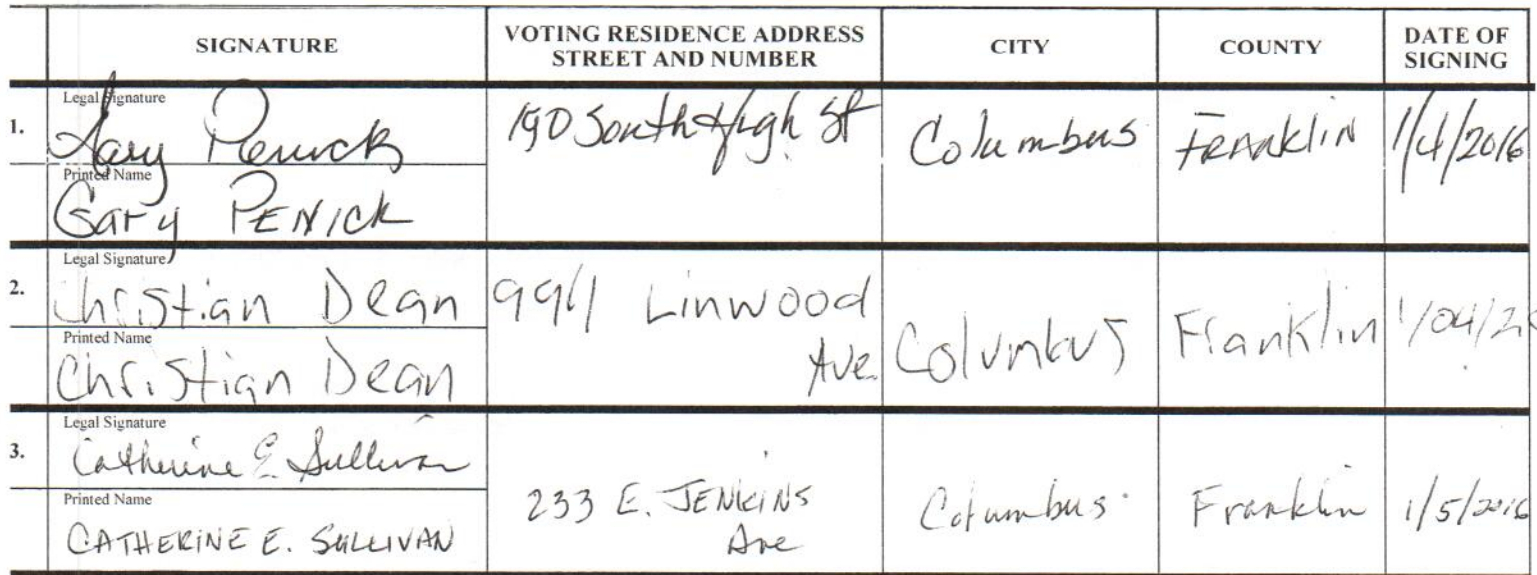 SIGNATURE
VOTING RESIDENCE ADDRESS
STREET AND NUMBER
CITY
COUNTY
DATE OF
SIGNING
1.
Legal Signature
Gary Penick
Printed Name
Gary PENICK
190 South High St
Columbus
Franklin
1/4/2016
2.
Legal Signature
Christian Dean
Printed Name
Christian Dean
Linwood
Ave
Columbus
Franklin
1/04/2
3.
Legal Signature
Catherine E Sullivan
Printed Name
CATHERINE E. SULLIVAN
233 E. JENKINS
Ave
Columbus
Franklin
1/5/2016